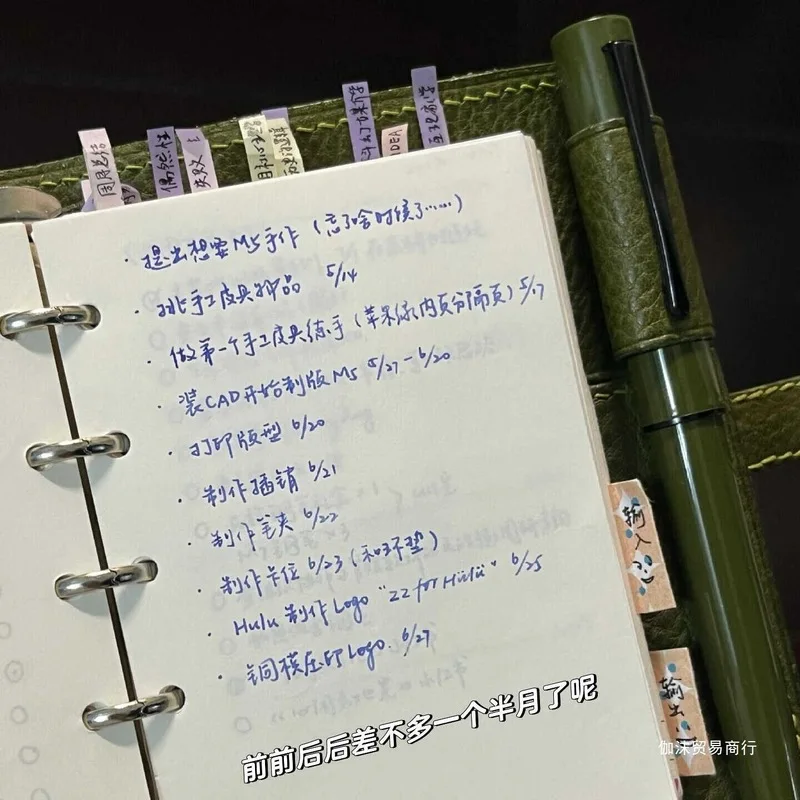 周总结
偶然性
失败
IDEA
·提出想要M5手作（忘了啥时候了……）
·挑手工皮具物品 5/14
·做第一个手工皮具练手（苹果绿内页分隔页）5/17
·装CAD开始制版M5 5/27-6/20
·打印版型 6/20
·制作插销 6/21
·制作笔夹 6/22
·制作卡位 6/23（和环垫）
·Hulu制作Logo “ZZ for Hülü” 6/25
·铜模压印Logo. 6/27
输入
输出
前前后后差不多一个半月了呢
伽沫贸易商行